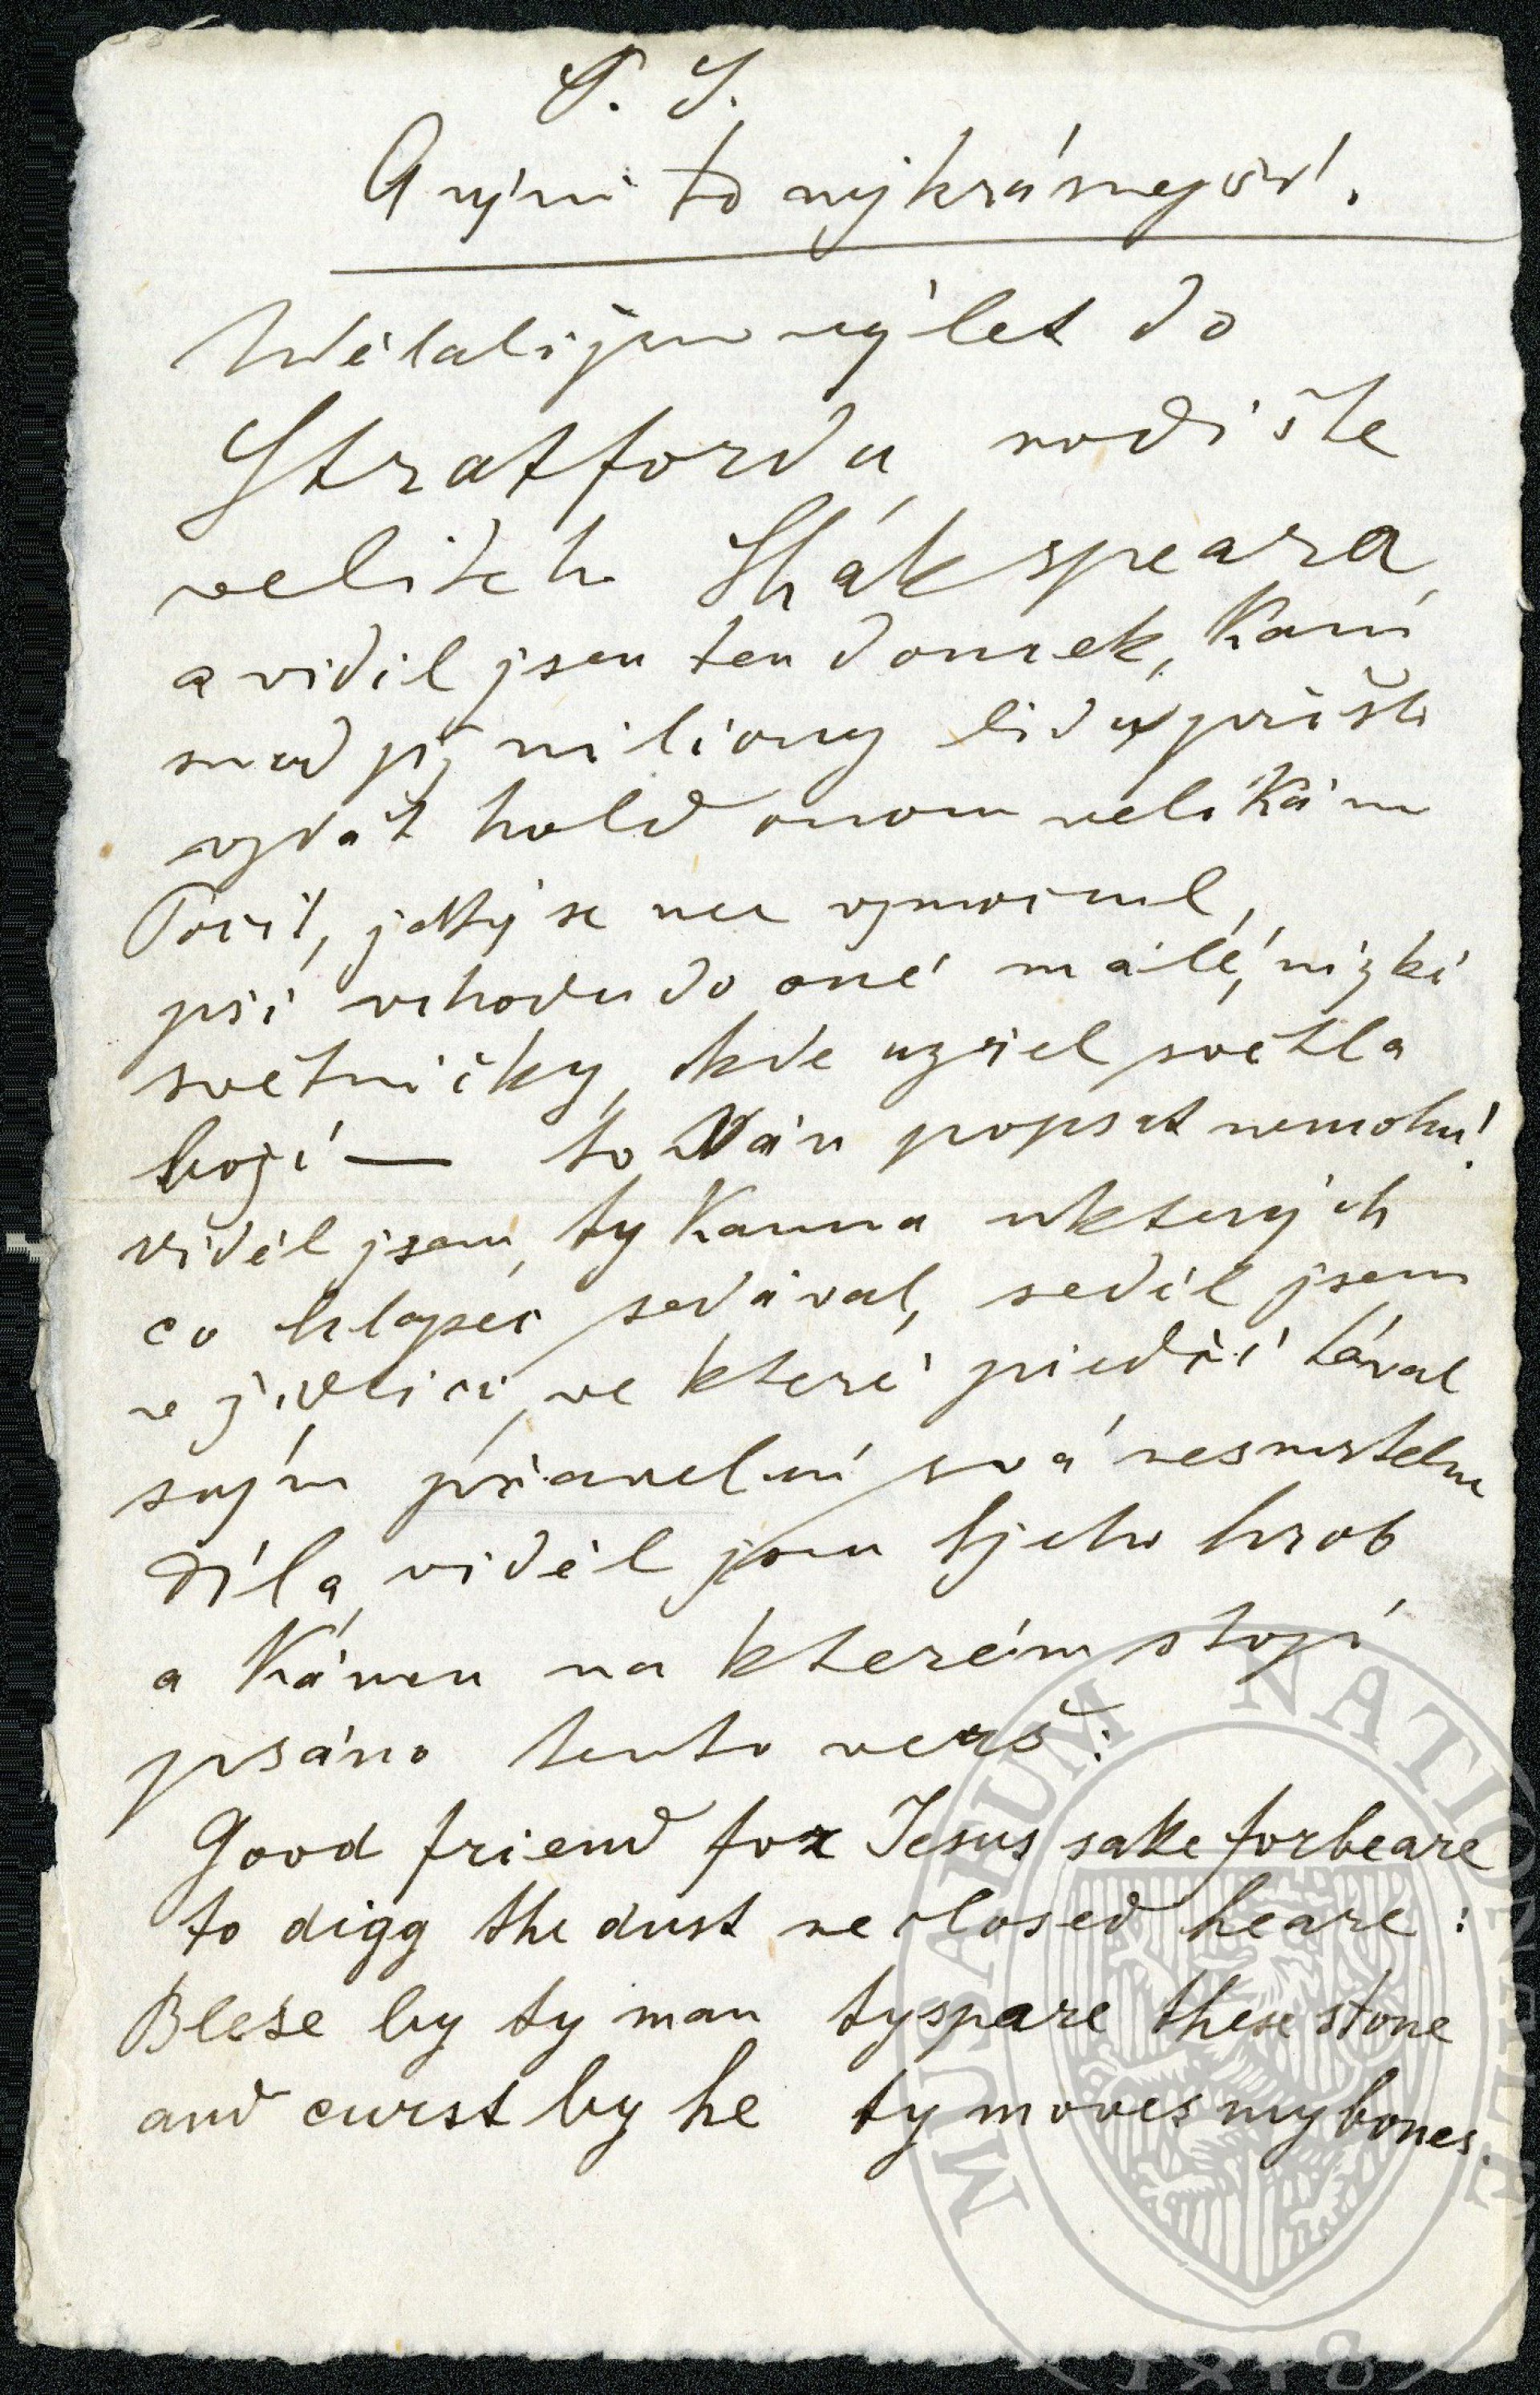 P. S.
A nyní to nejkrásnejší.
Udělali jsme výlet do
Stratfordu, rodiště
velikého Shákspeara
a viděl jsem ten domek, kam
snad již miliony lidu přišlo
vzdát hold onom velikánu
Pocit, jaký se nee zmocnil,
při vchodu do oné málé, nízké
světničky, kde uzřel světla
boží — to Vám popsat nemohu!
viděl jsem, ty kamna u kterých
co hlapec sedával, seděl jsem
v židlici, ve které předčítával
svým přátelům svá nesmrtelna
díla, viděl jsem tj jeho hrob
a kámen na kterém stojí
psáno tento verš:
Good friend for Jesus sake forbeare
to digg the dust ne closed heare:
Blese by ty man tyspare these stone
and curst by he ty moves my bones.
MUSAEUM NATIONALE
1818